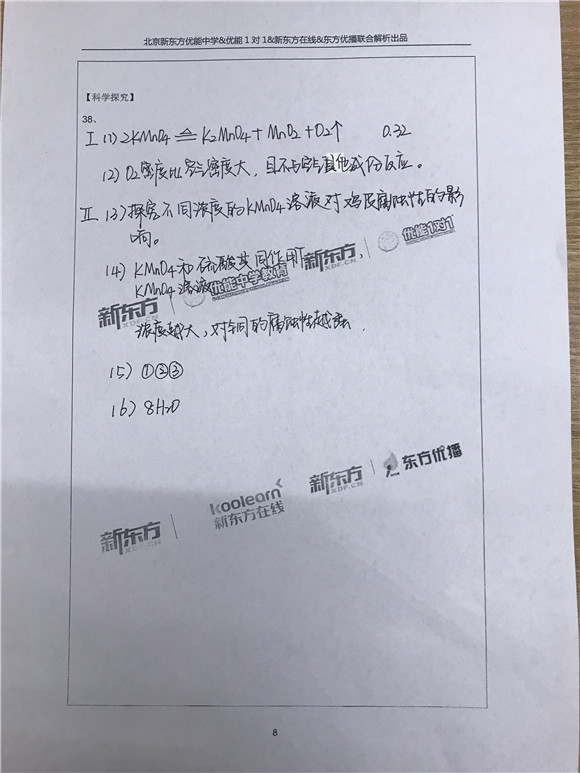 北京新东方优能中学&优能1对1&新东方在线&东方优播联合解析出品
【科学探究】
38、
I (1) 2KMnO4 ≜ K2MnO4 + MnO2 + O2↑ 0.32
(2) O2密度比空气密度大，且不与空气其他成份反应。
II (3) 探究不同浓度的KMnO4溶液对鸡皮腐蚀性的影
响。
(4) KMnO4和硫酸共同作用下，
KMnO4溶液
浓度越大，对铜的腐蚀性越强.
(5) ①②③
(6) 8H2O
新东方 XDF.CN 优能中学教育
新东方 XDF.CN 优能1对1
新东方 XDF.CN
koolearn 新东方在线
新东方 XDF.CN 东方优播
8